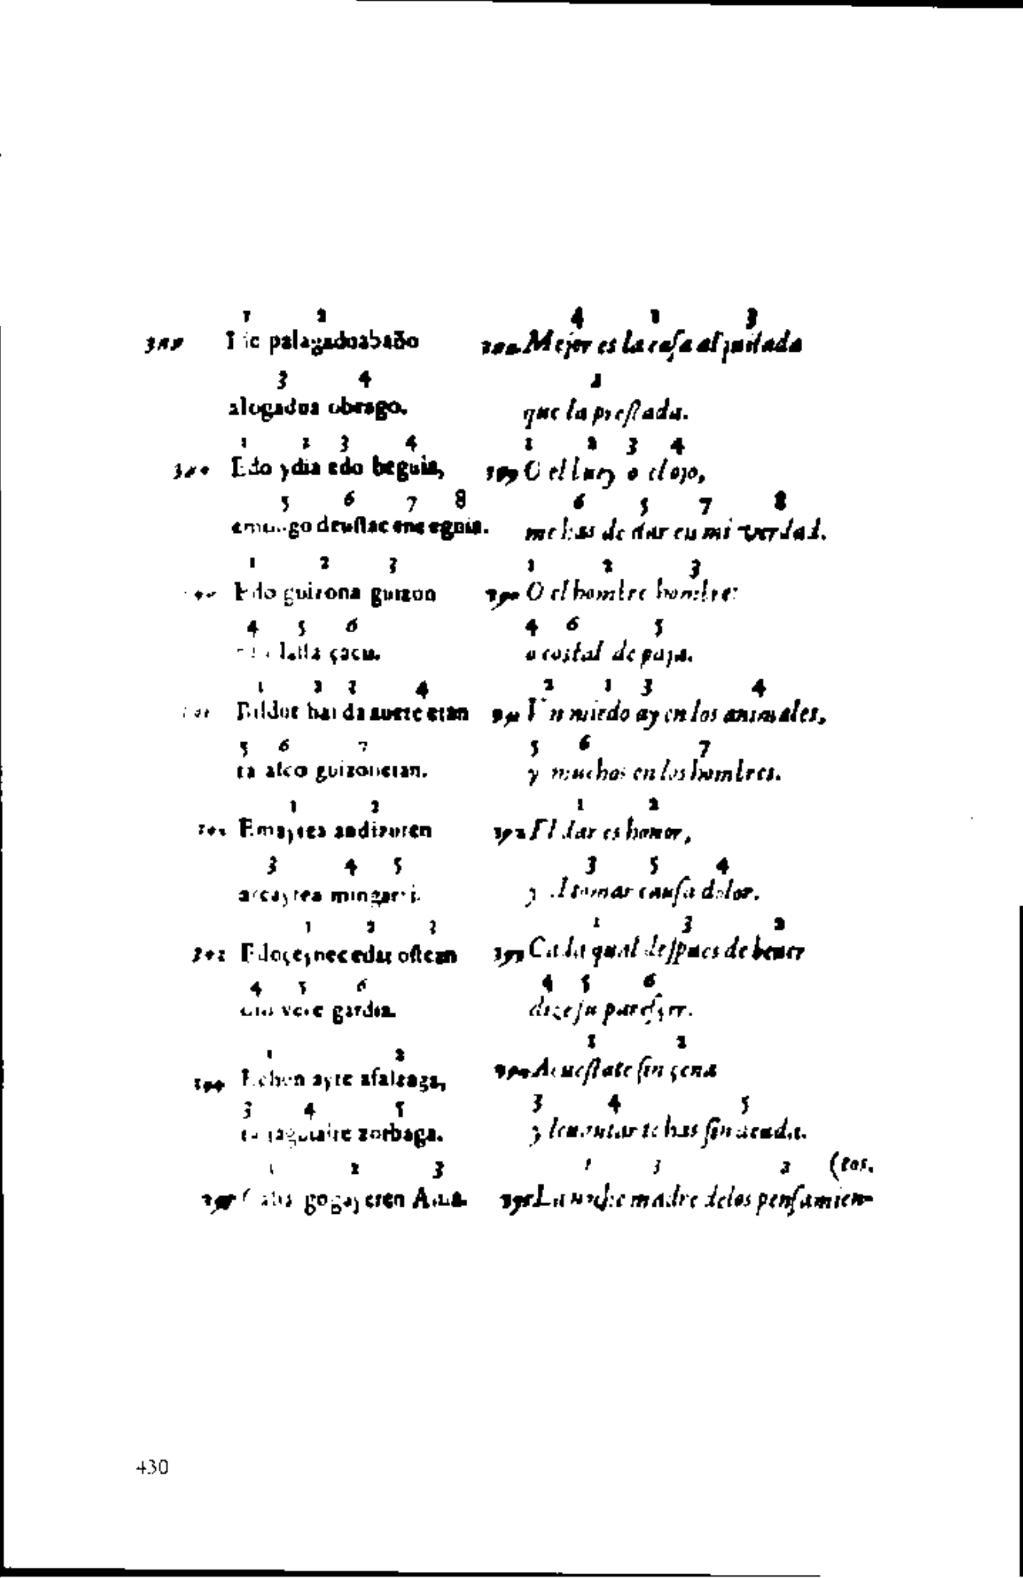 1 2
palagaduabaño
3 4
alogadua obeago.
1 2 3 4
Edo ydia edo beguia,
5 6 7 8
deustac ene eguia.
1 2 3
Edo guizona guizon
4 5 6
lasta çacu.
1 2 3 4
Bildur bat da auere etan
5 6 7
ta asco guizonetan.
1 2
Emaytea andizuren
3 4 5
arcaytea mingarri.
1 2 3
ostean
4 5 6
vere gardia.
1 2
ayre afalzaga,
3 4 5
ta jaguiaite zorbaga.
1 2 3
Gaba gogayeren Ama.
4 1 3
Mejor es la casa alquilada
2
que la prestada.
1 2 3 4
389 O el buey o el ojo,
6 5 7 8
me has de dar en mi verdad.
1 2 3
390 O el hombre hombre:
4 6 5
o costal de paja.
2 1 3 4
391 Vn miedo ay en los animales,
5 6 7
y muchos en los hombres.
1 2
392 El dar es honor,
3 5 4
y el tomar causa dolor.
1 3 2
393 Cada qual despues de beuer
4 5 6
dize su pareçer.
1 2
394 Acuestate sin çena
3 4 5
y leuantar te has sin deuda.
1 3 2 (tos.
395 La noche madre delos pensamien-
430